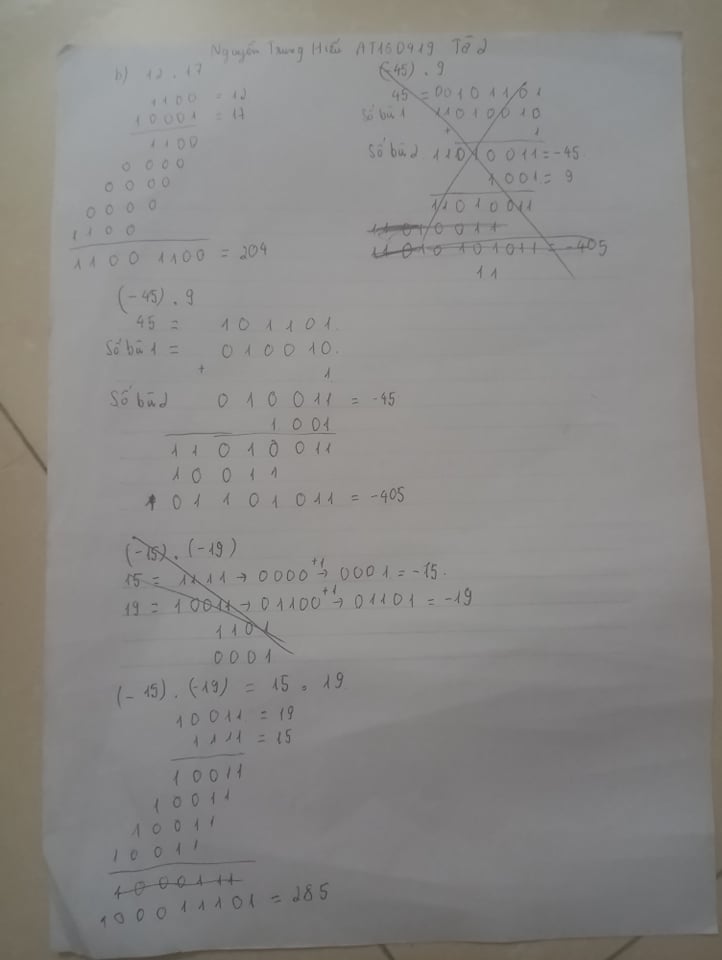 Nguyễn Trung Hiếu AT160419 Tổ 2
b) 12 . 17
1100 = 12
10001 = 17
1100
0000
0000
0000
1100
1100 1100 = 204
(-45) . 9
45 = 00101101
Số bù 1 11010010
+ 1
Số bù 2 11010011 = -45
1001 = 9
11010011
11010011
11010101011 = -405
11
(-45) . 9
45 = 101101.
Số bù 1 = 010010.
+ 1
Số bù 2 010011 = -45
1001
11010011
10011
101101011 = -405
(-15) . (-19)
15 = 1111 → 0000 +1→ 0001 = -15.
19 = 10011 → 01100 +1→ 01101 = -19
1101
0001
(-15) . (-19) = 15 . 19
10011 = 19
1111 = 15
10011
10011
10011
10011
1000111
100011101 = 285